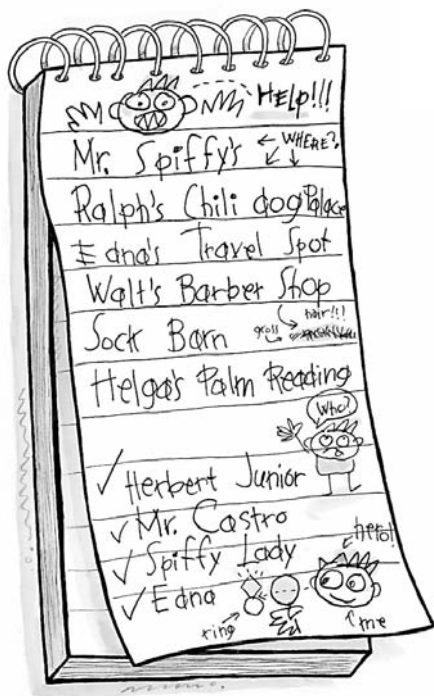 HELP!!!
Mr. Spiffy's ← WHERE?
Ralph's Chili dog Palace
Edna's Travel Spot
Walt's Barber Shop
hair!!!
Sock Barn gross
Helga's Palm Reading
Who?
✓ Herbert Junior
✓ Mr. Castro
✓ Spiffy Lady
hero!
✓ Edna
ring
me